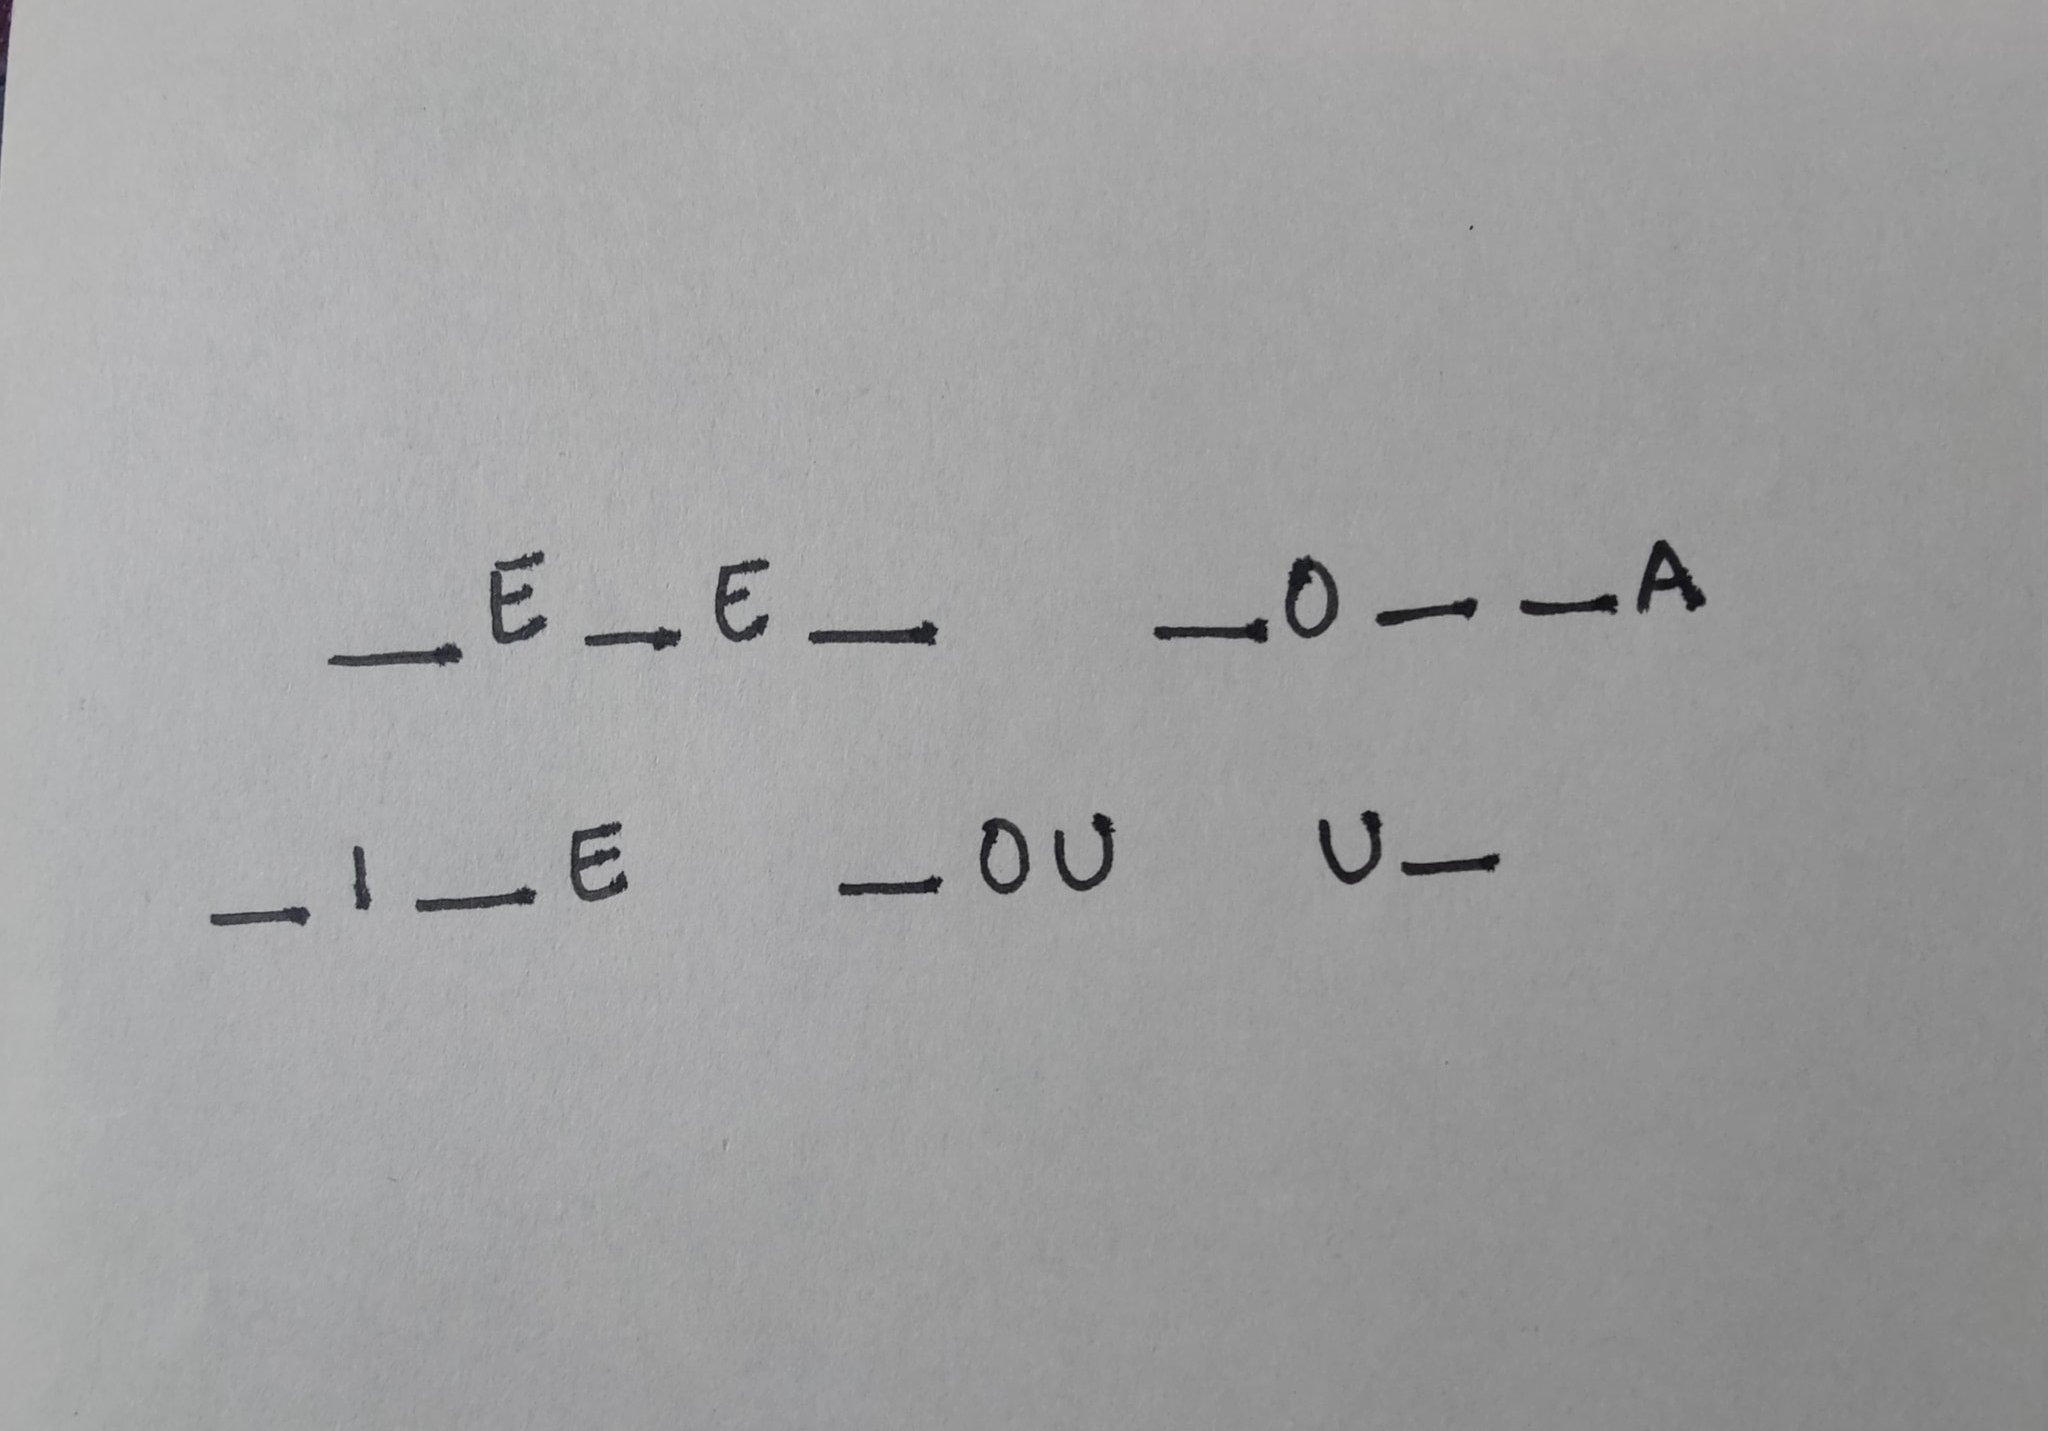 _E_E_ _O__A
_I_E _OU U_